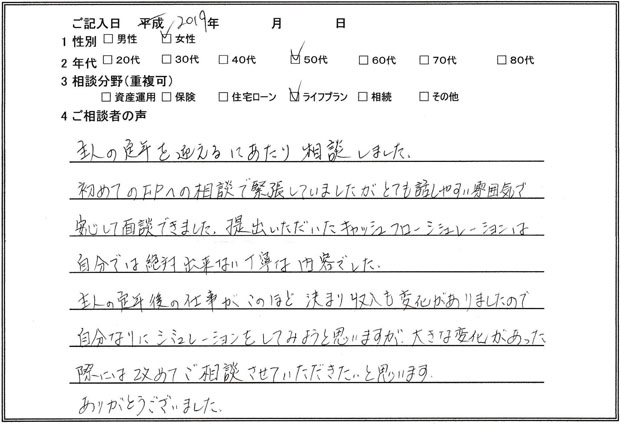 ご記入日 平成 2019年 月 日
1 性別 □男性 ☑女性
2 年代 □20代 □30代 □40代 ☑50代 □60代 □70代 □80代
3 相談分野(重複可)
□資産運用 □保険 □住宅ローン ☑ライフプラン □相続 □その他
4 ご相談者の声
主人の定年を迎えるにあたり相談しました。
初めてのFPへの相談で緊張していましたがとても話しやすい雰囲気で
安心して面談できました。提出いただいたキャッシュフローシュレーションは
自分では絶対出来ない丁寧な内容でした。
主人の定年後の仕事がこのほど決まり収入も変化がありましたので
自分なりにシミュレーションをしてみようと思いますが、大きな変化があった
際には改めてご相談させていただきたいと思います。
ありがとうございました。